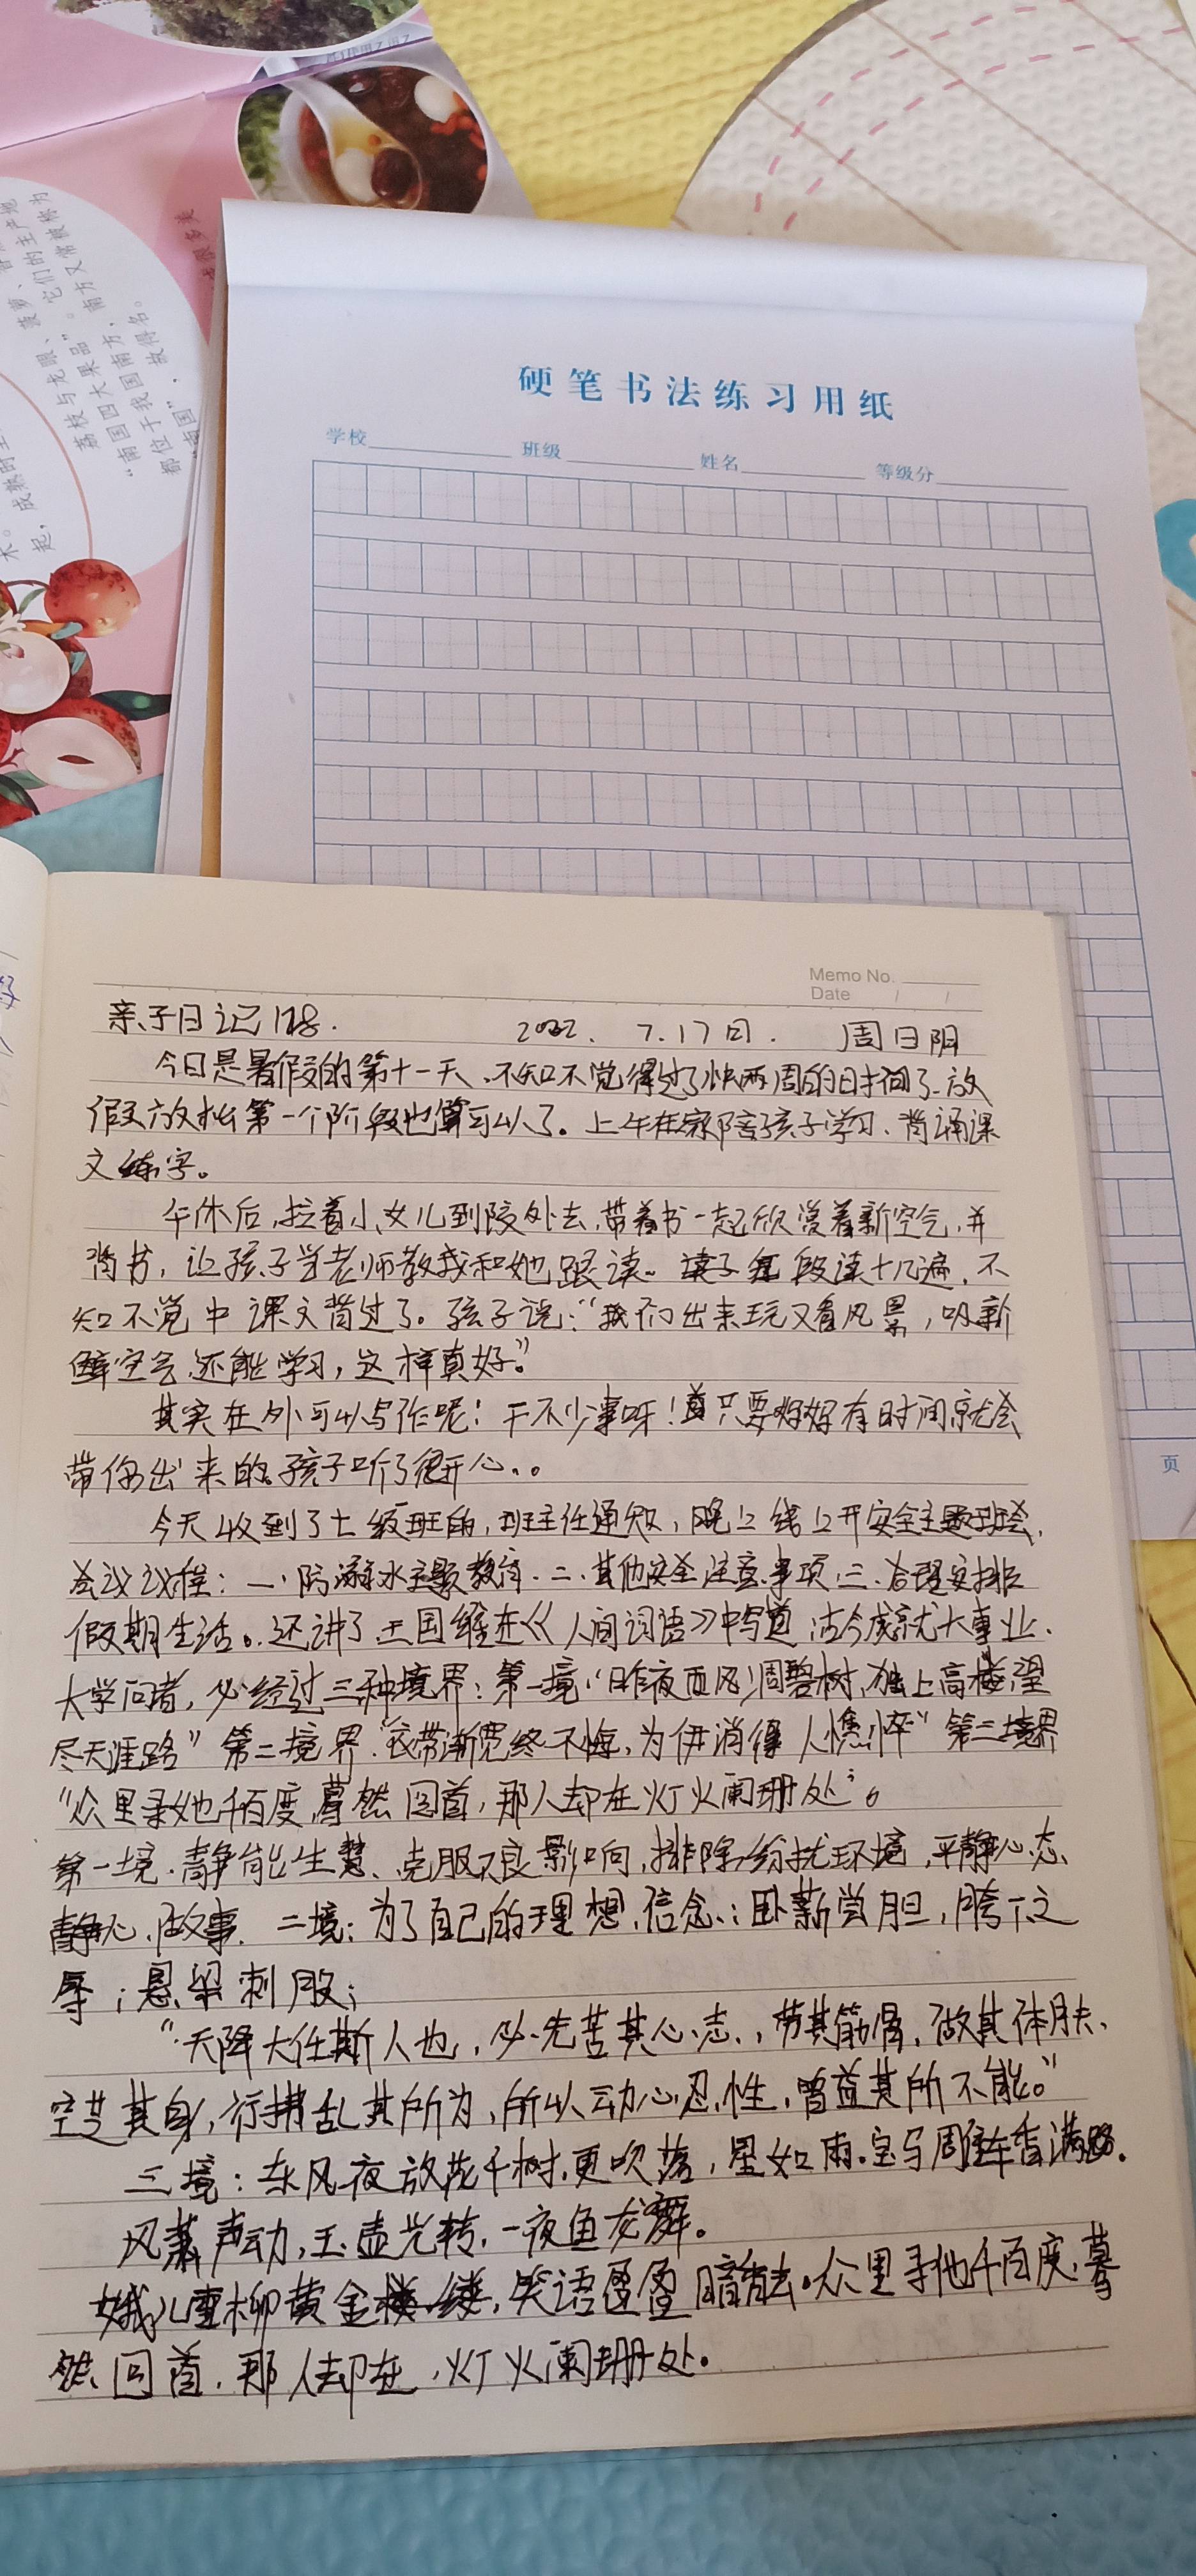 荔枝与龙眼、菠萝、香
“南国四大果品”。它们的主产地
都位于我国南方，南方又常被称为
“南国”，故得名。
硬笔书法练习用纸
学校 班级 姓名 等级分
页
Memo No.
Date / /
亲子日记128. 2022. 7.17日. 周日阴
今日是暑假的第十一天、不知不觉得过了快两周的时间了、放
假放松第一个阶段也算可以了。上午在家陪孩子学习、背诵课
文练字。
午休后，拉着小女儿到院外去，带着书一起欣赏着新空气，并
背书，让孩子当老师教我和她跟读。读了 段读十几遍，不
知不觉中课文背过了。孩子说：“我们出来玩又看风景，吸新
鲜空气还能学习，这样真好。”
其实在外可以写作呢！干不少事呀！只要妈妈有时间就会
带你出来的。孩子听了很开心。。
今天收到了七级班的，班主任通知，晚上线上开安全主题班会，
会议议程：一、防溺水主题教育、二、其他安全注意事项三、合理安排
假期生活。还讲了王国维在《人间词语》中写道，古今成就大事业、
大学问者，必经过三种境界：第一境“昨夜西风凋碧树，独上高楼望
尽天涯路”第二境界“衣带渐宽终不悔，为伊消得人憔悴”第三境界
“众里寻她千百度，蓦然回首，那人却在灯火阑珊处”。
第一境·静能生慧、克服不良影响，排除纷扰环境，平静心态、
静心做事. 二境：为了自己的理想，信念：卧薪尝胆，胯下之
辱；悬梁刺股；
“天降大任斯人也，必先苦其心志，劳其筋骨，做其体肤、
空乏其身，行拂乱其所为，所以动心忍性，曾益其所不能。”
三境：东风夜放花千树，更吹落，星如雨。宝马周车香满路.
风萧声动，玉壶光转，一夜鱼龙舞。
娥儿雪柳黄金缕，笑语盈盈暗香去。众里寻他千百度，蓦
然回首，那人却在，灯火阑珊处。